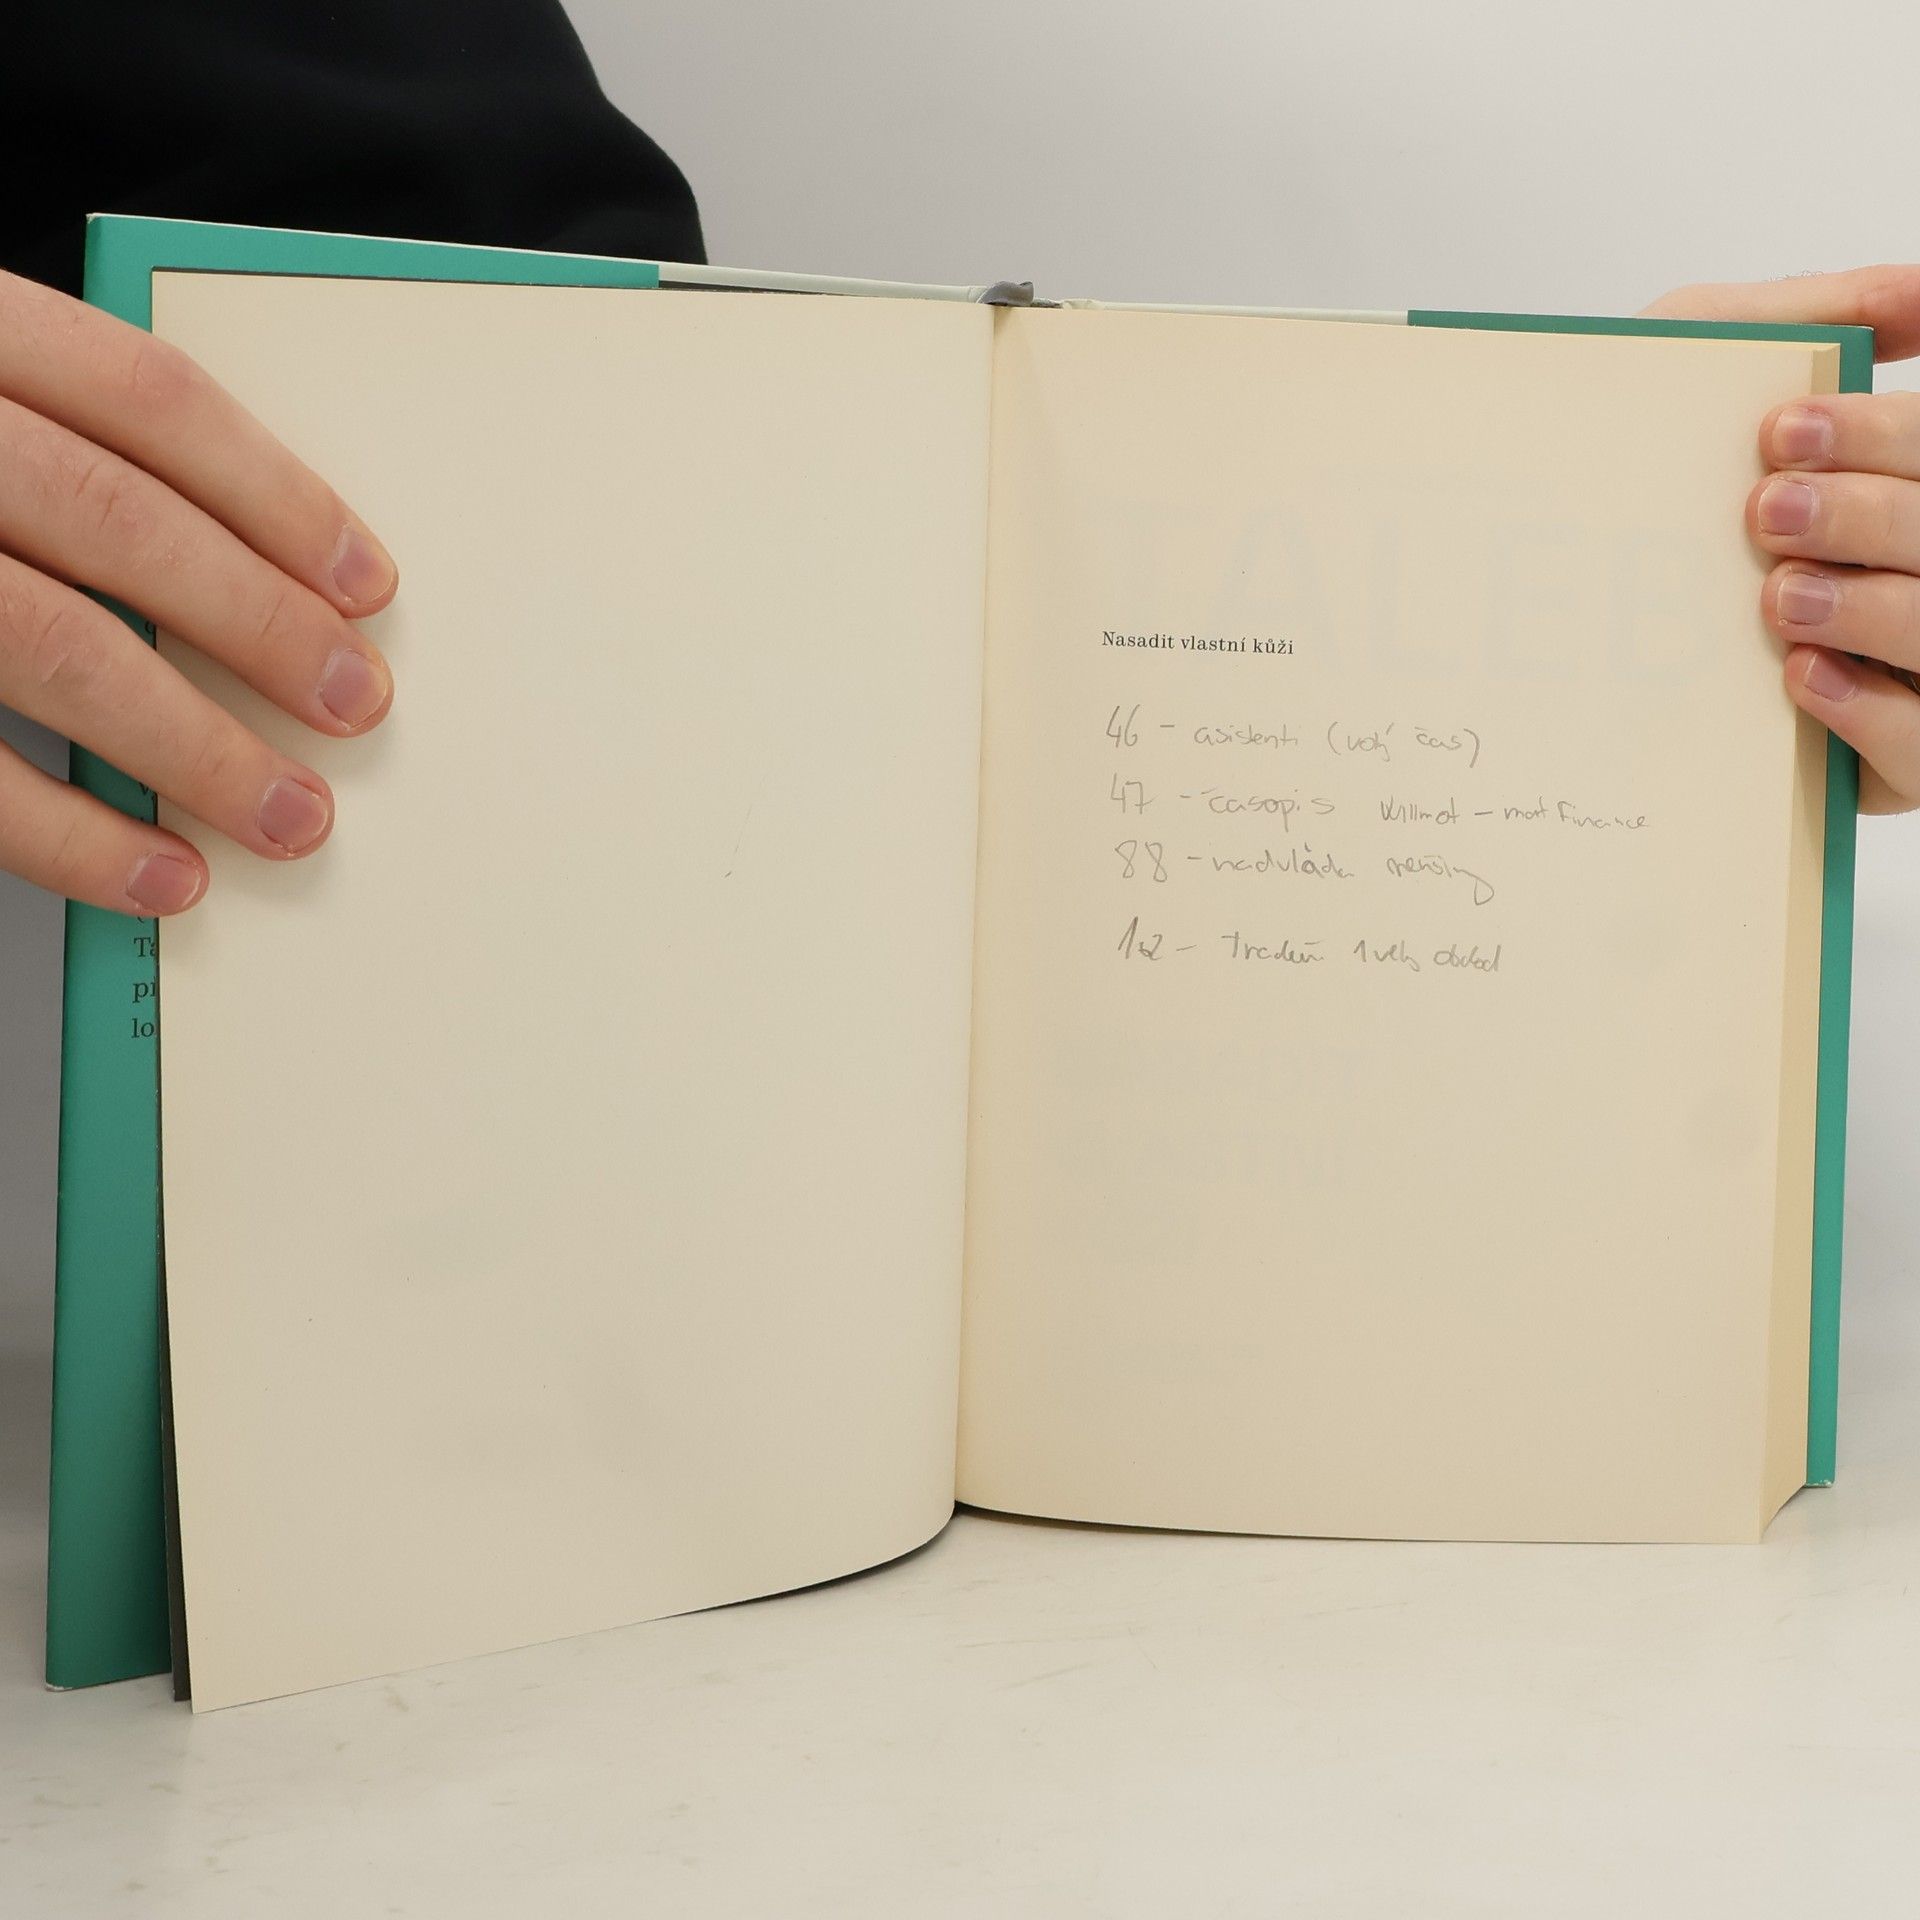 Nasadit vlastní kůži
46 - asistenti (volný čas)
47 - časopis Willmot - mat finance
88 - nadvláda menšiny
- 1 velký obchod
Ta
př
lo